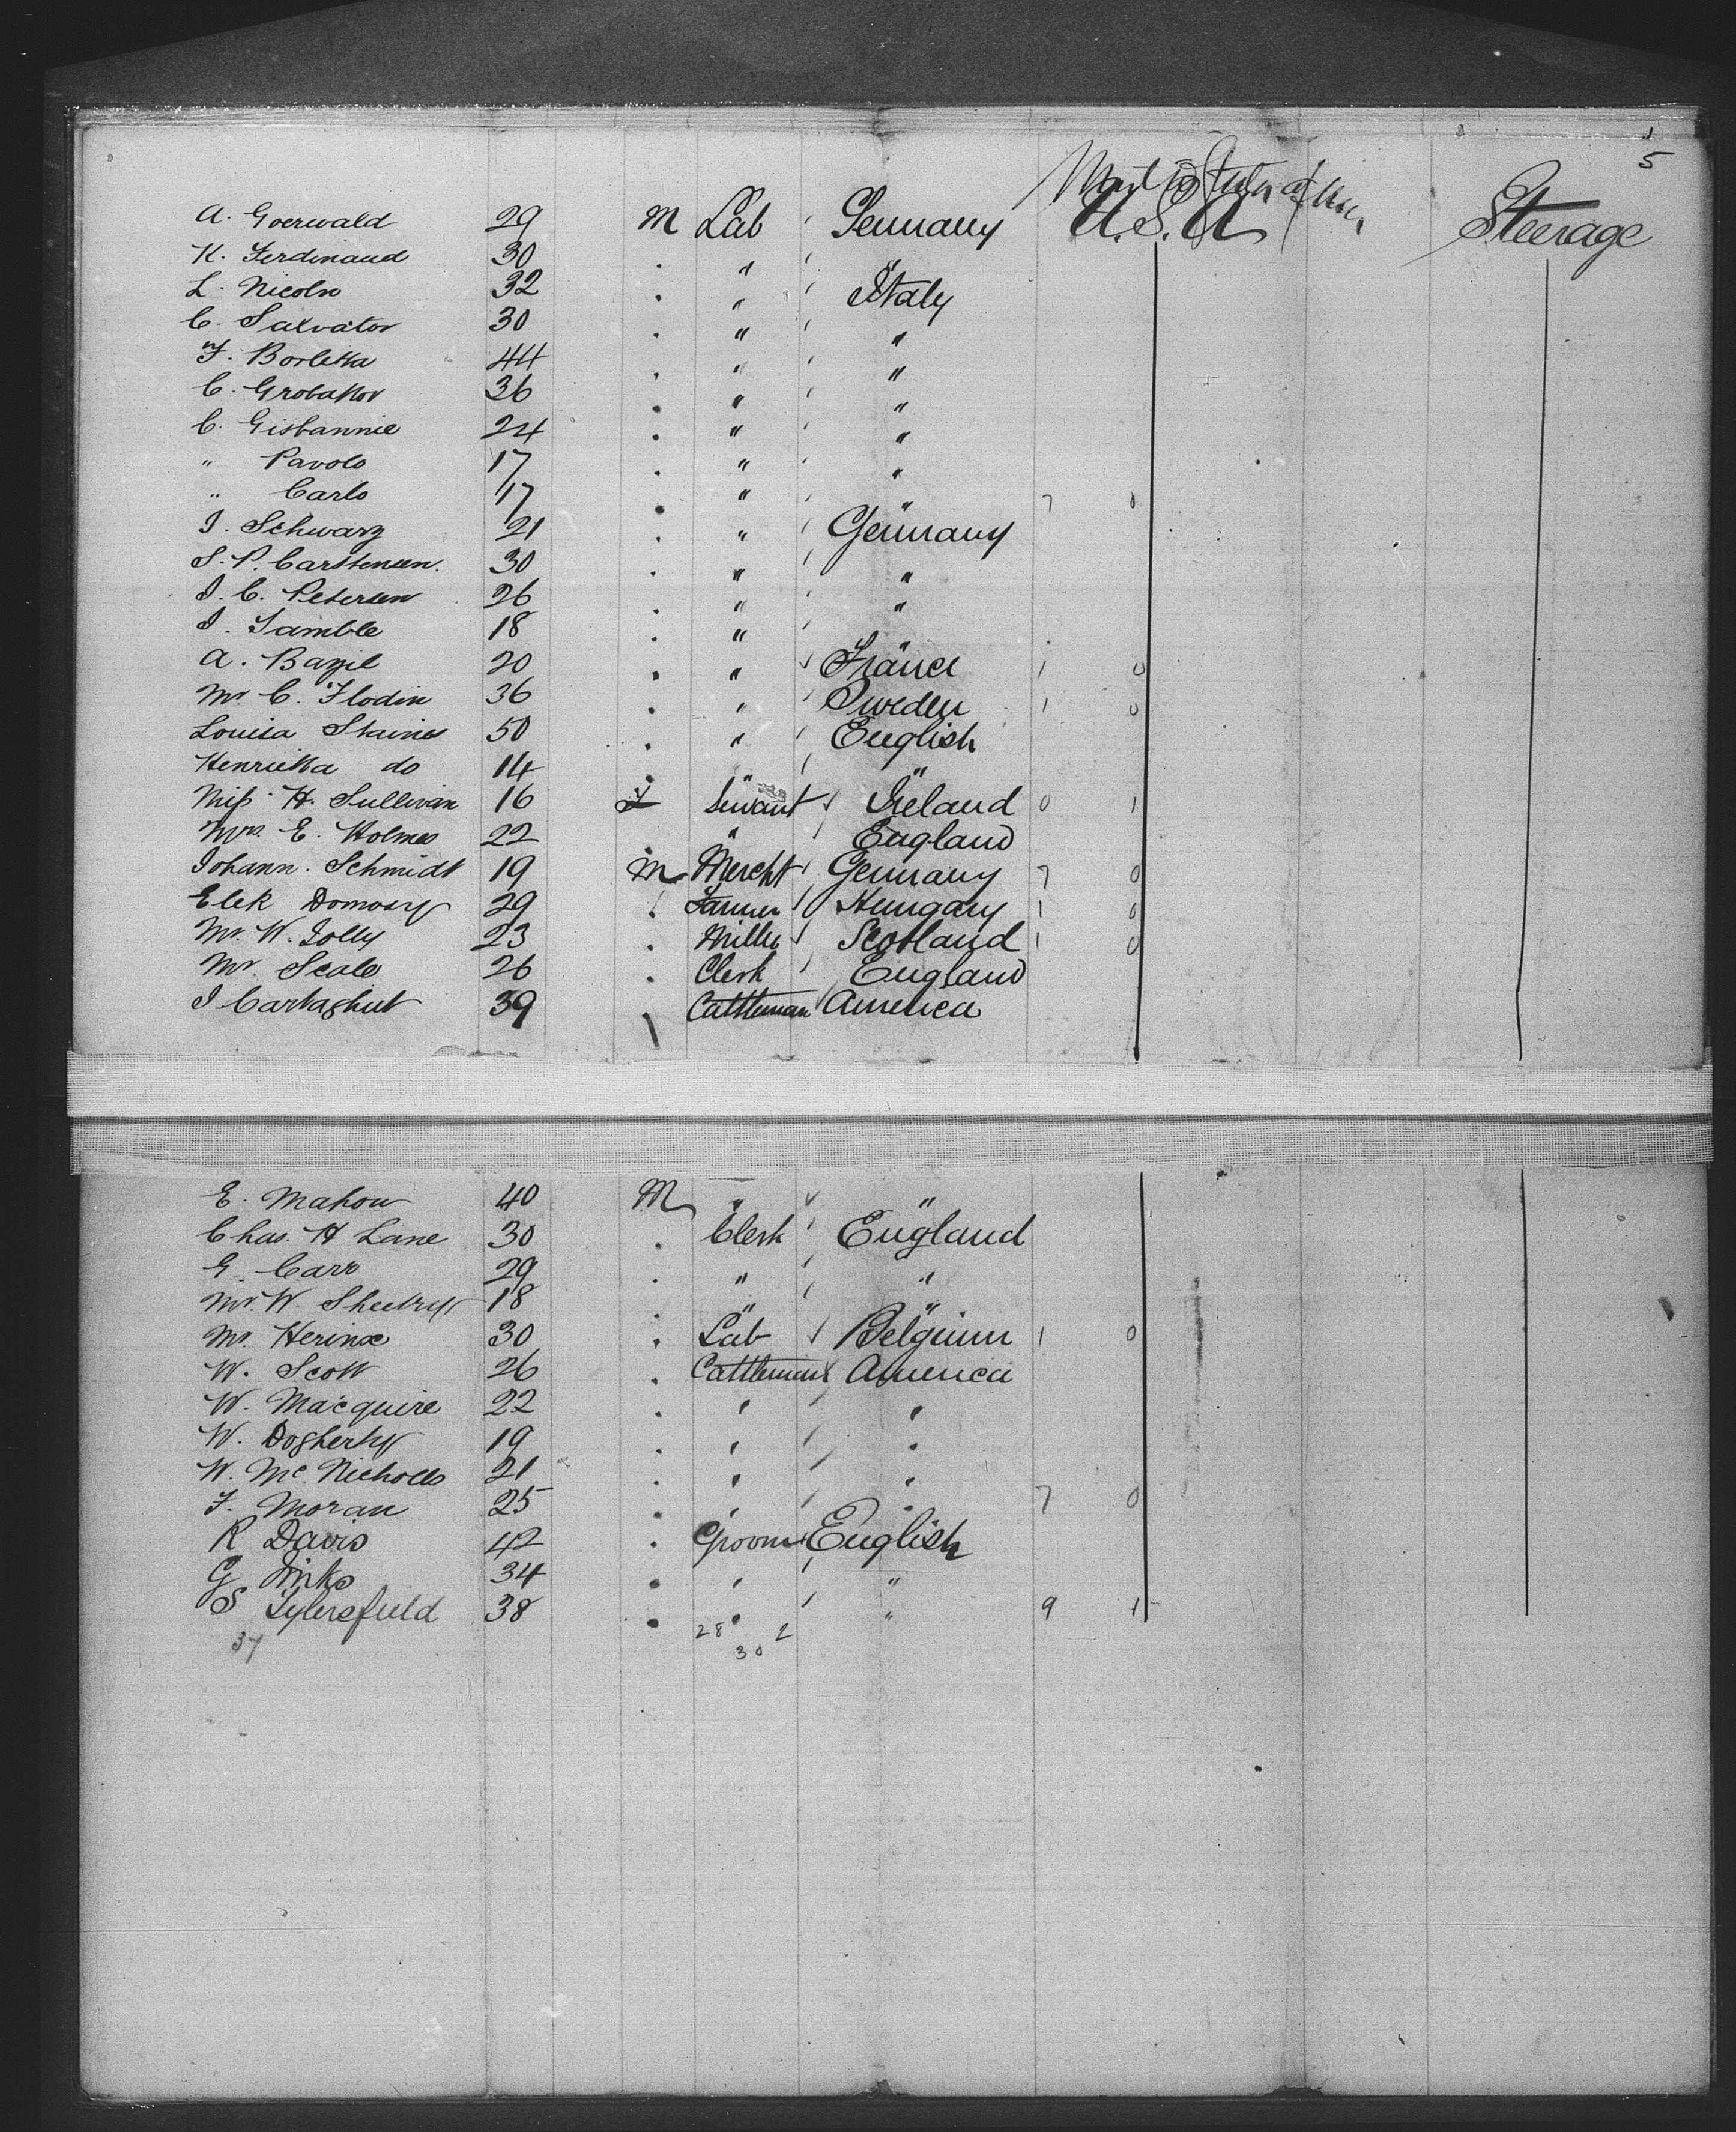 5
A. Goerwald 29 M Lab Germany U.S.A Steerage
K. Ferdinand 30 . " "
L. Nicoln 32 . " Italy
C. Salvator 30 . " "
F. Borletta 44 . " "
C. Grobattor 36 . " "
C. Gisbannie 24 . " "
" Pavolo 17 . " "
" Carlo 17 . " " 7 0
I. Schwarz 21 . " Germany
S. P. Carstensen. 30 . " "
I. C. Petersen 26 . " "
I. Tamble 18 . " "
A. Bazil 20 . " France 1 0
Mr. C. Flodin 36 . " Sweden 1 0
Louisa Staines 50 . " English
Henrietta do 14 . "
Miss H. Sullivan 16 F Servant Ireland 0 1
Mrs. E. Holmes 22 " England
Johann. Schmidt 19 M Mercht Germany 7 0
Elek Domosy 29 . Farmer Hungary 1 0
Mr. W. Jolly 23 . Miller Scotland 1 0
Mr. Seale 26 . Clerk England
I Cartaghut 39 Cattleman America
E. Mahon 40 M " "
Chas. H Lane 30 . Clerk England
G. Carr 29 . " "
Mr. W. 18 . " "
Mr. Herinx 30 . Lab Belgium 1 0
W. Scott 26 . Cattleman America
W. Macquire 22 . " "
W. Dogherty 19 . " "
W. Mc Nicholls 21 . " "
F. Moran 25 . " " 7 0
R Davis 42 . Groom English
G Jinks 34 . " "
S Tylersfield 38 . " " 9 1
37 28 2
30